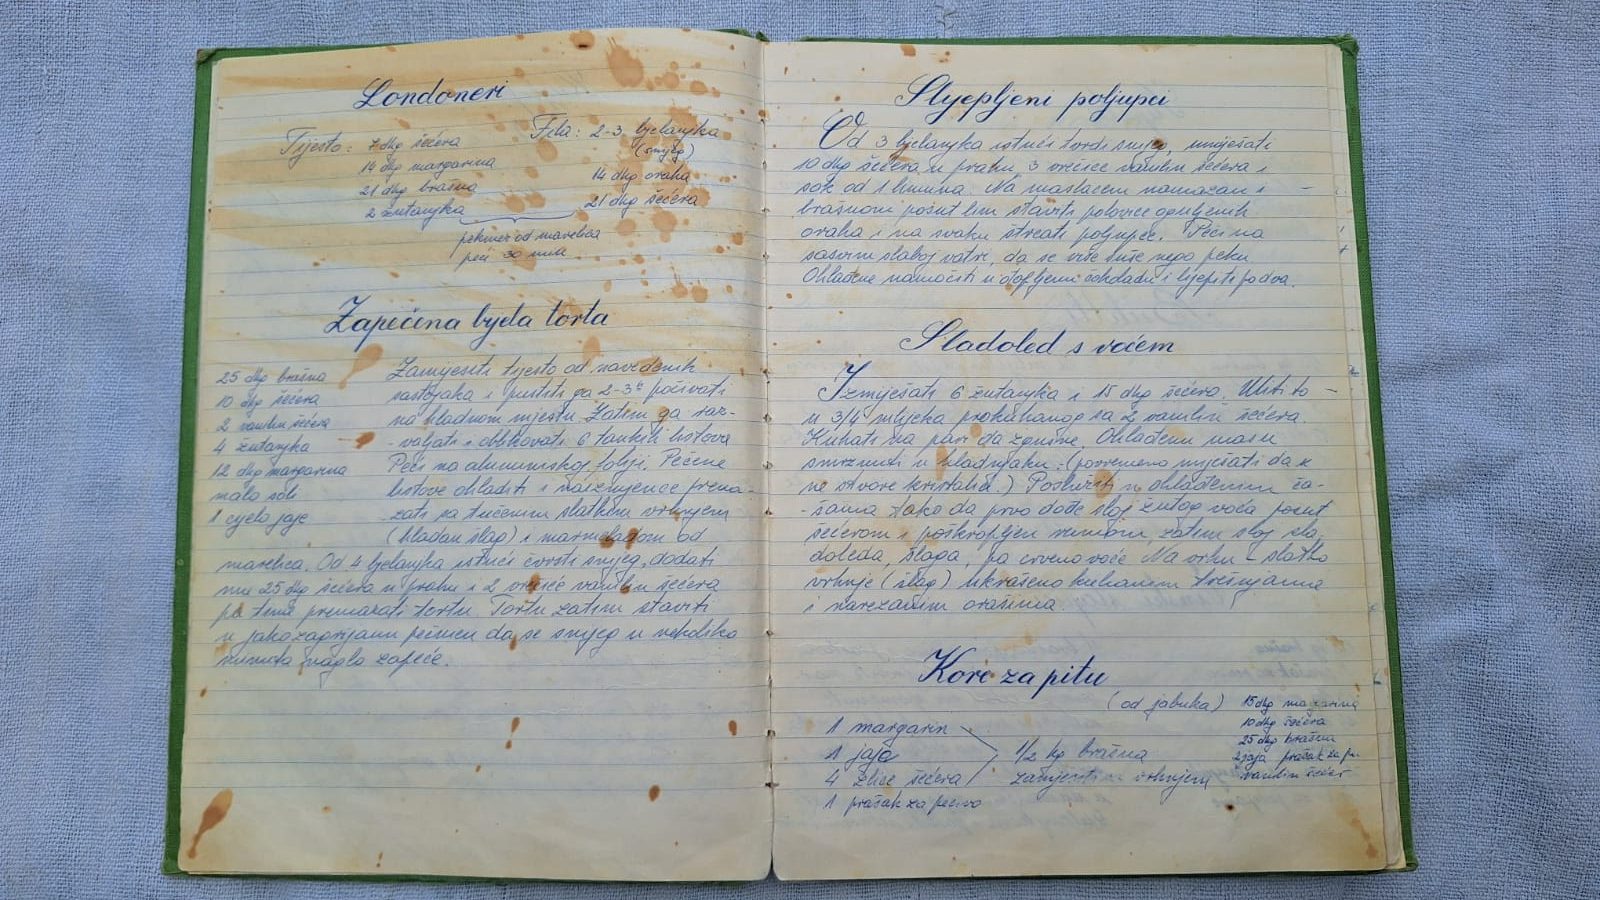 Londoneri
Tijesto: 7 dkg šećera
14 dkg margarina
21 dkg brašna
2 žutanjka
Fila: 2-3 bjelanjka
(snijeg)
14 dkg oraha
21 dkg šećera
pekmez od marelica
peći 30 min
Zapečena bijela torta
25 dkg brašna
10 dkg šećera
2 vanilin šećera
4 žutanjka
12 dkg margarina
malo soli
1 cijelo jaje
Zamijesiti tijesto od navedenih
sastojaka i pustiti ga 2-3h počivati
na hladnom mjestu. Zatim ga raz-
-valjati i oblikovati 6 tankih listova
Peći na aluminijskoj foliji. Pečene
listove ohladiti i naizmjence prema-
zati sa tučenim slatkim vrhnjem
(hladan šlag) i marmeladom od
marelica. Od 4 bjelanjka istući čvrsti snijeg, dodati
mu 25 dkg šećera u prahu i 2 vrećice vanilin šećera
pa time premazati tortu. Tortu zatim staviti
u jako zagrijanu pećnicu da se snijeg u nekoliko
minuta naglo zapeče.
Slijepljeni poljupci
Od 3 bjelanjka istući tvrdi snijeg, umiješati
10 dkg šećera u prahu 3 vrećice vanilin šećera i
sok od 1 limuna. Na maslacem namazan i
brašnom posut lim staviti polovice oguljenih
oraha i na svaku štrcati poljupce. Peći na
sasvim slaboj vatri, da se više suše nego peku.
Ohlađene namočiti u otopljenu čokoladu i lijepiti po dva.
Sladoled s voćem
Izmiješati 6 žutanjka i 15 dkg šećera. Uliti to
u 3/4 mlijeka prokuhanog sa 2 vanilin šećera.
Kuhati na pari da zgusne. Ohlađenu masu
smrznuti u hladnjaku. (povremeno miješati da se
ne stvore kristalići.) Poslužiti u ohlađenim ča-
-šama tako da prvo dođe sloj žutog voća posut
šećerom i poškropljen rumom, zatim sloj sla,
doleda, šlaga, pa crveno voće. Na vrhu - slatko
vrhnje (šlag) ukrašeno kuhanim trešnjama
i narezanim orasima
Kore za pitu
(od jabuka)
1 margarin
1 jaja
4 žlice šećera
1 prašak za pecivo
1/2 kg brašna
zamijesiti s vrhnjem
15 dkg margarina
10 dkg šećera
25 dkg brašna
2 jaja prašak za pe.
vanilin šećer